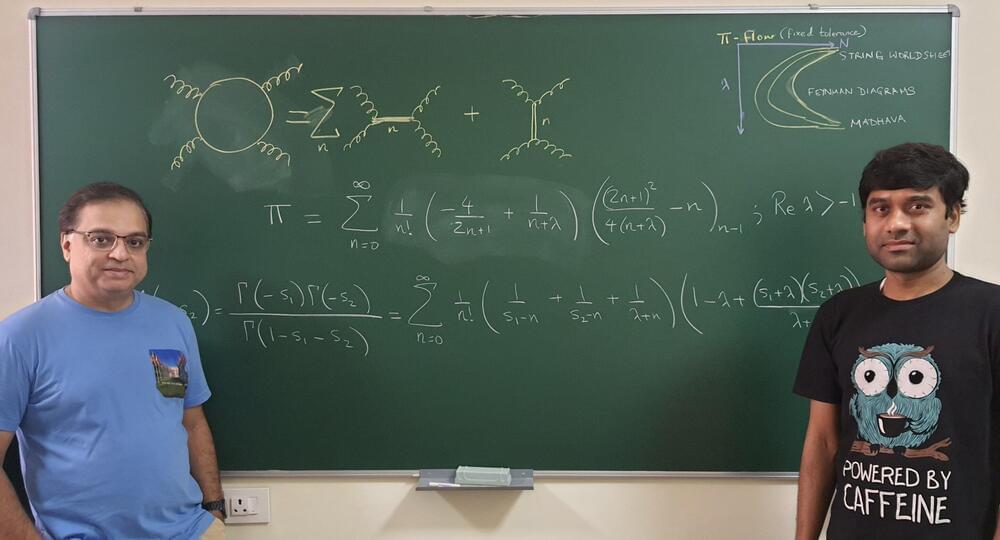 π-flow (fixed tolerance)
N
STRING WORLDSHEE
λ
FEYNMAN DIAGRAMS
MADHAVA
= Σ_n n + n
π = ∑_{n=0}^{∞} \frac{1}{n!} \left( \frac{-4}{2n+1} + \frac{1}{n+λ} \right) \left( \frac{(2n+1)^2}{4(n+λ)} - n \right)_{n-1} ; Re λ > -1
s_2) = \frac{Γ(-s_1)Γ(-s_2)}{Γ(1-s_1-s_2)} = ∑_{n=0}^{∞} \frac{1}{n!} \left( \frac{1}{s_1-n} + \frac{1}{s_2-n} + \frac{1}{λ+n} \right) \left( 1-λ+ \frac{(s_1+λ)(s_2+λ)}{λ+} \right)
POWERED BY
CAFFEINE